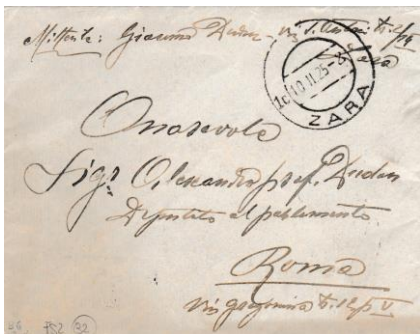 Mittente: Giacomo Dudan - via
Zara
10.11.25-8
ZARA
Onorevole
Sigr Alessandro prof. Dudan
Deputato al parlamento
Roma
via Gregoriana